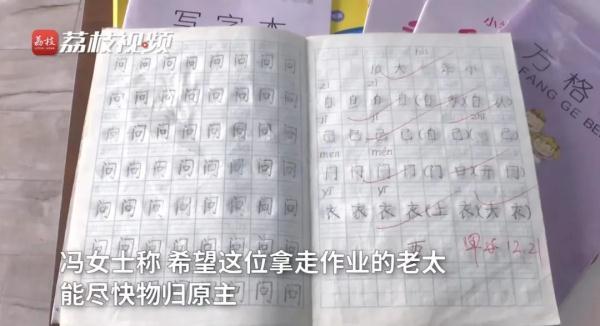 荔枝 荔枝视频
写字本
小
方格
FANG GE BE
问 问 问 问 问 问 问 问
问 问 问 问 问 问 问 问
问 问 问 问 问 问 问 问
问 问 问 问 问 问 问 问
问 问 问 问 问 问 问 问
大 小
zì zì
自 自 自 自 (自 自 从)
jǐ jǐ
己 己 己 己 (自 己) 己)
mén mén
门 门 门 门 (门 开 门)
yī yī
衣 衣 衣 衣 (上 衣) (大 衣)
12.21
冯女士称 希望这位拿走作业的老太
能尽快物归原主